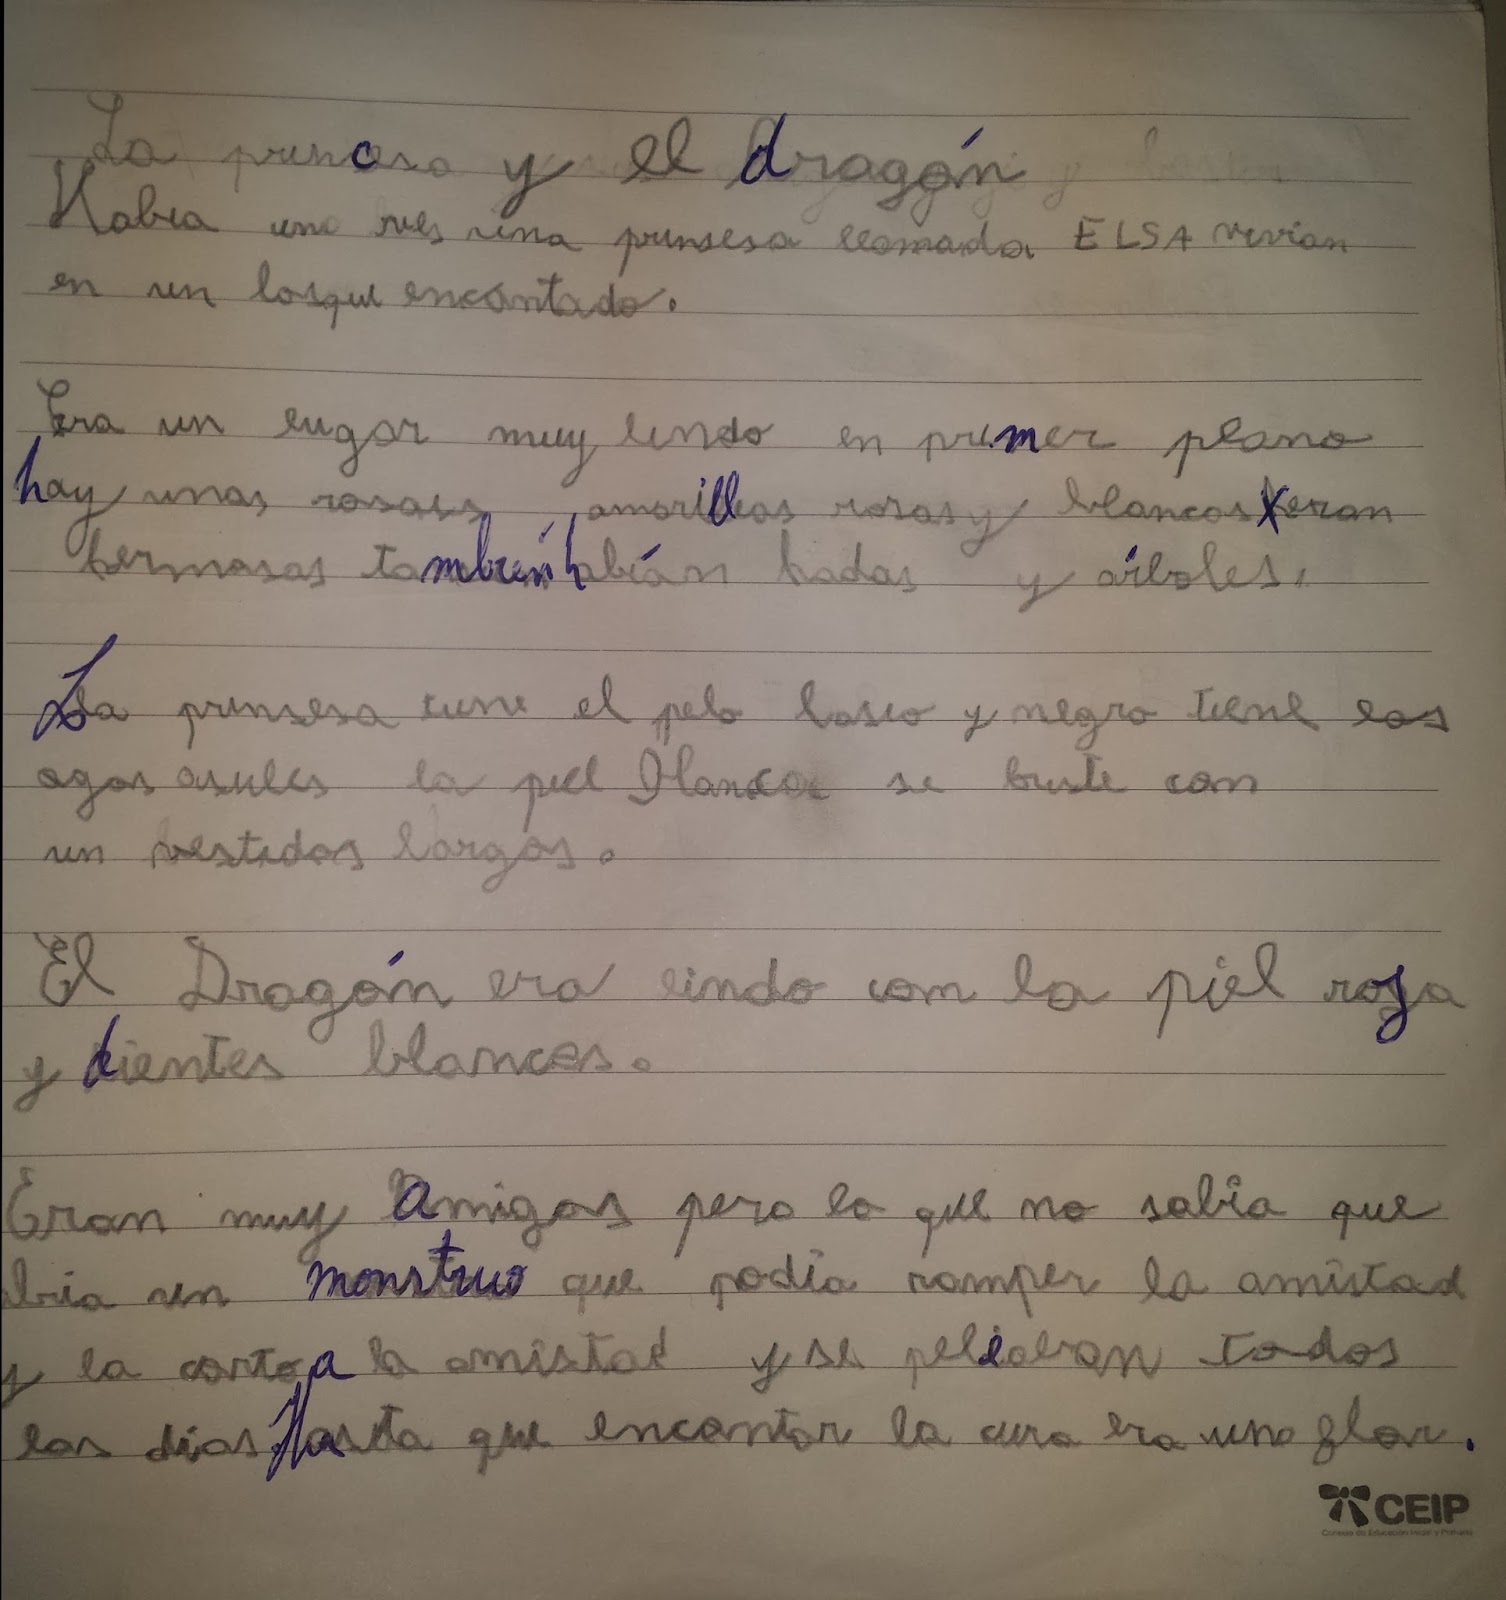 La princesa y el dragón
Habia una ves una prinsesa llamada ELSA vivian
en un losque encantado.
Era un lugar muy lindo en primer plano
hay unas rosas amarillas rosas y blancas eran
hermosas también habían hadas y árboles.
La prinsesa tiene el pelo lasio y negro tiene los
ogos asules la piel blanca se biste con
un vestidos largos.
El Dragón era lindo con la piel roja
y dientes blances.
Eran muy amigos pero lo que no sabia que
abria un monstruo que podia romper la amistad
y la corto a la amistad y se peliaban todos
los dias Hasta que encontar la cura era una flor.
CEIP
Consejo de Educación Inicial y Primaria